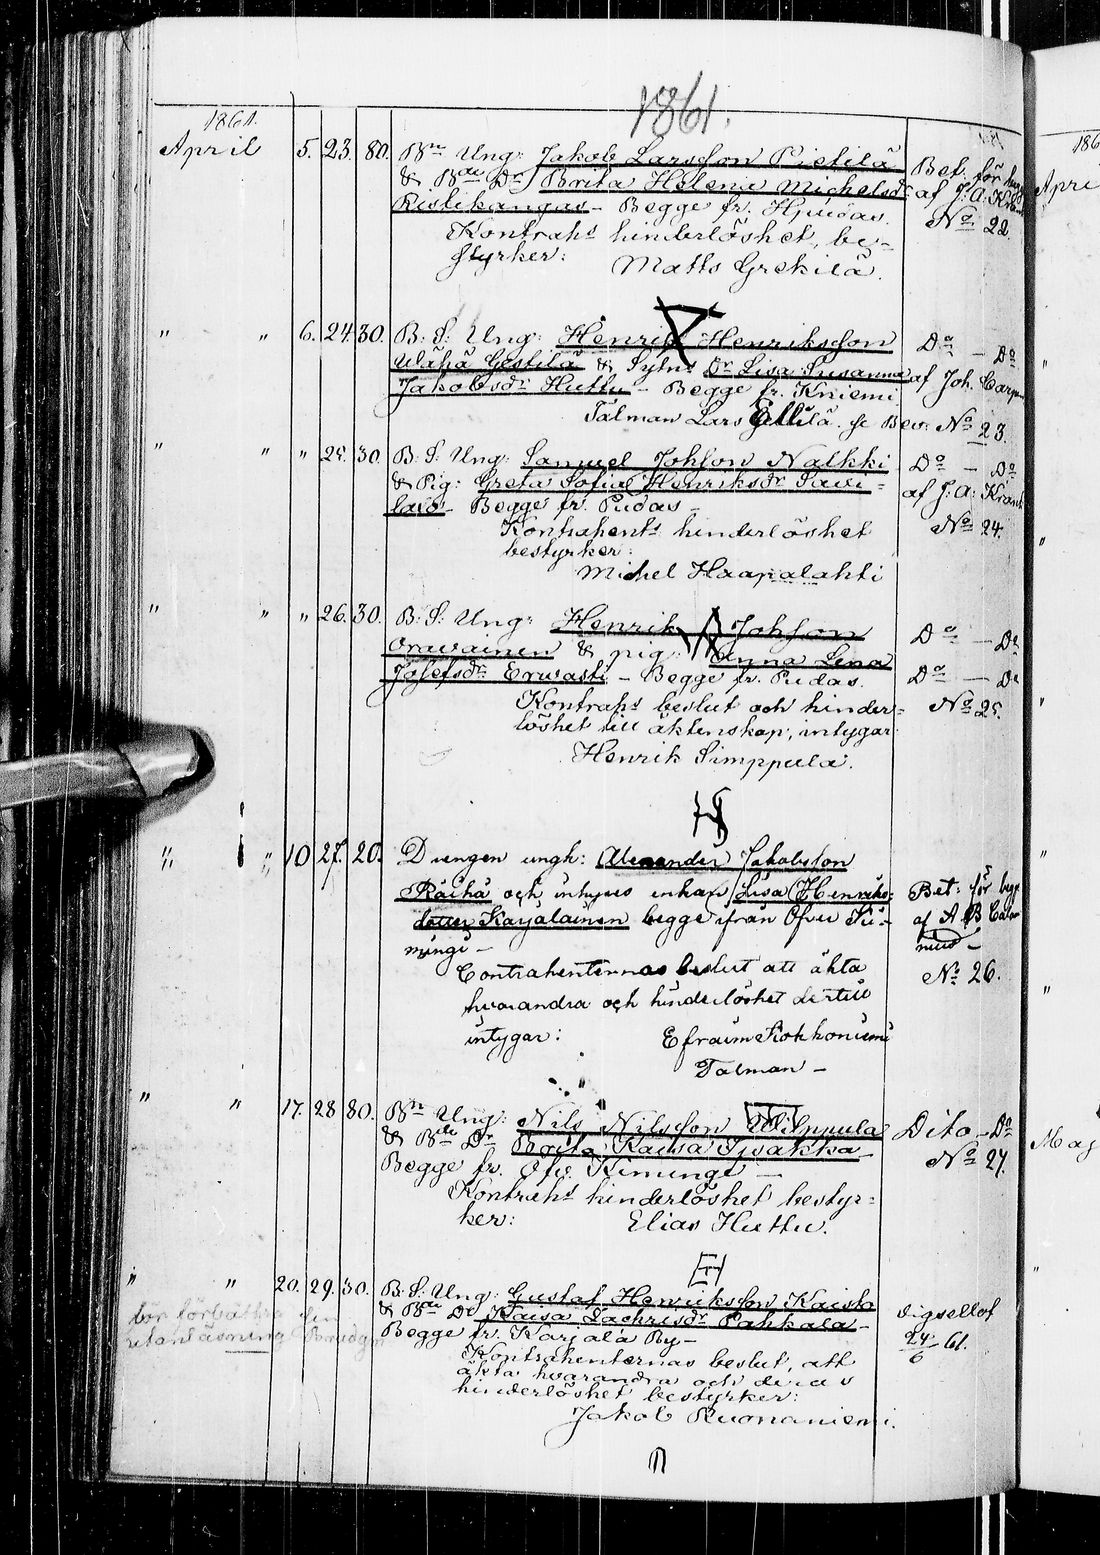 1861.
1861.
April 5. 23. 80. Bn Ung: Jakob Larsson Pietilä
& Bde Dr Brita Helena Michelsdr
Ristikangas – Begge fr. Hjudas.
Kontrahs hinderlöshet, be-
styrker: Matts Grekilä.
Bet. för
af J. A.
No 22.
" " 6. 24. 30. B. S. Ung: Henrik Henriksson
Wähä Gestilä & Sytns Dr Lisa Susanna
Jakobsdr Huttu – Begge fr. Kniemi
Tälman Lars se Bev.
Do – Do
af Joh.
No 23.
" " " 25. 30. B. S. Ung: Samuel Johsson Nalkki
& Pig: Greta Sofia Henriksdr Savi-
laxo – Begge fr. Pudas –
Kontrahents hinderlöshet
bestyrker:
Michel Haapalahti
Do – Do
af J. A.
No 24.
" " " 26. 30. B. S. Ung: Henrik Johsson
Orawainen & pig: Anna Lena
Josefsdr Erwasti – Begge fr. Pudas.
Kontrahs beslut och hinder-
löshet till äktenskap, intygar
Henrik Simppula.
Do – Do
Do – Do
No 25.
" " 10 27. 20. Drengen ungk: Alexander Jakobsson
Räihä och inhyses enkan Lisa Henriks-
dotter Karjalainen begge ifrån Öfver Ki-
mingi –
Contrahenternas beslut att äkta
hvarandra och hinderlöshet dertill
intygar: Efraim Kokkoniemi
Talman –
Bet: för
af A B
No 26.
" " 17. 28 80. Bn Ung: Nils Nilsson Wilppula
& Bde Dr Brita Kaisa Tjsakka –
Begge fr. Öfv. Kiminge –
Kontrahs hinderlöshet bestyr-
ker: Elias Huttu.
Dito – Do
No 27.
" " 20. 29. 30. B. S. Ung: Gustaf Henriksson Kaista
& Bde Dr Kaisa Zachrisdr Pahkala –
Begge fr. Karjala By –
Kontrahenternas beslut, att
äkta hvarandra och deras
hinderlöshet bestyrker:
Jakob Ruonaniemi.
vigsellof
24/6 61.
bör förbättra sin
Brudg
186
Apri
Maj